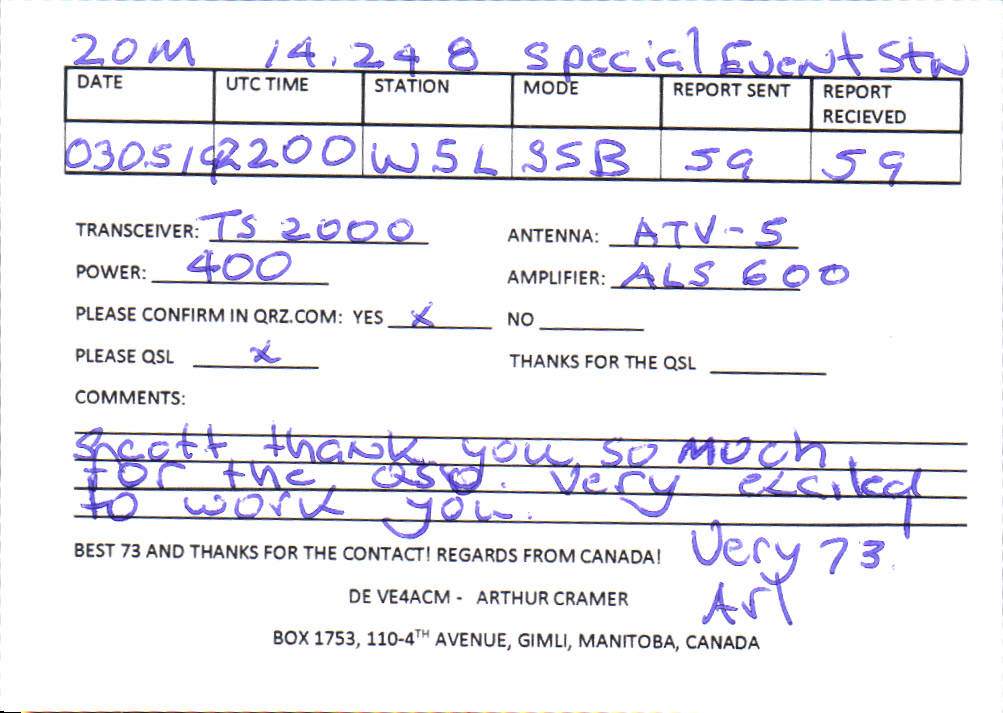 20M 14.248 Special Event Stn
DATE UTC TIME STATION MODE REPORT SENT REPORT RECIEVED
030519 2200 W5L SSB 59 59
TRANSCEIVER: TS 2000 ANTENNA: ATV-5
POWER: 400 AMPLIFIER: ALS 600
PLEASE CONFIRM IN QRZ.COM: YES X NO
PLEASE QSL X THANKS FOR THE QSL
COMMENTS:
thank you so much
for the QSO. Very excited
to work you.
BEST 73 AND THANKS FOR THE CONTACT! REGARDS FROM CANADA! Very 73
Art
DE VE4ACM - ARTHUR CRAMER
BOX 1753, 110-4TH AVENUE, GIMLI, MANITOBA, CANADA